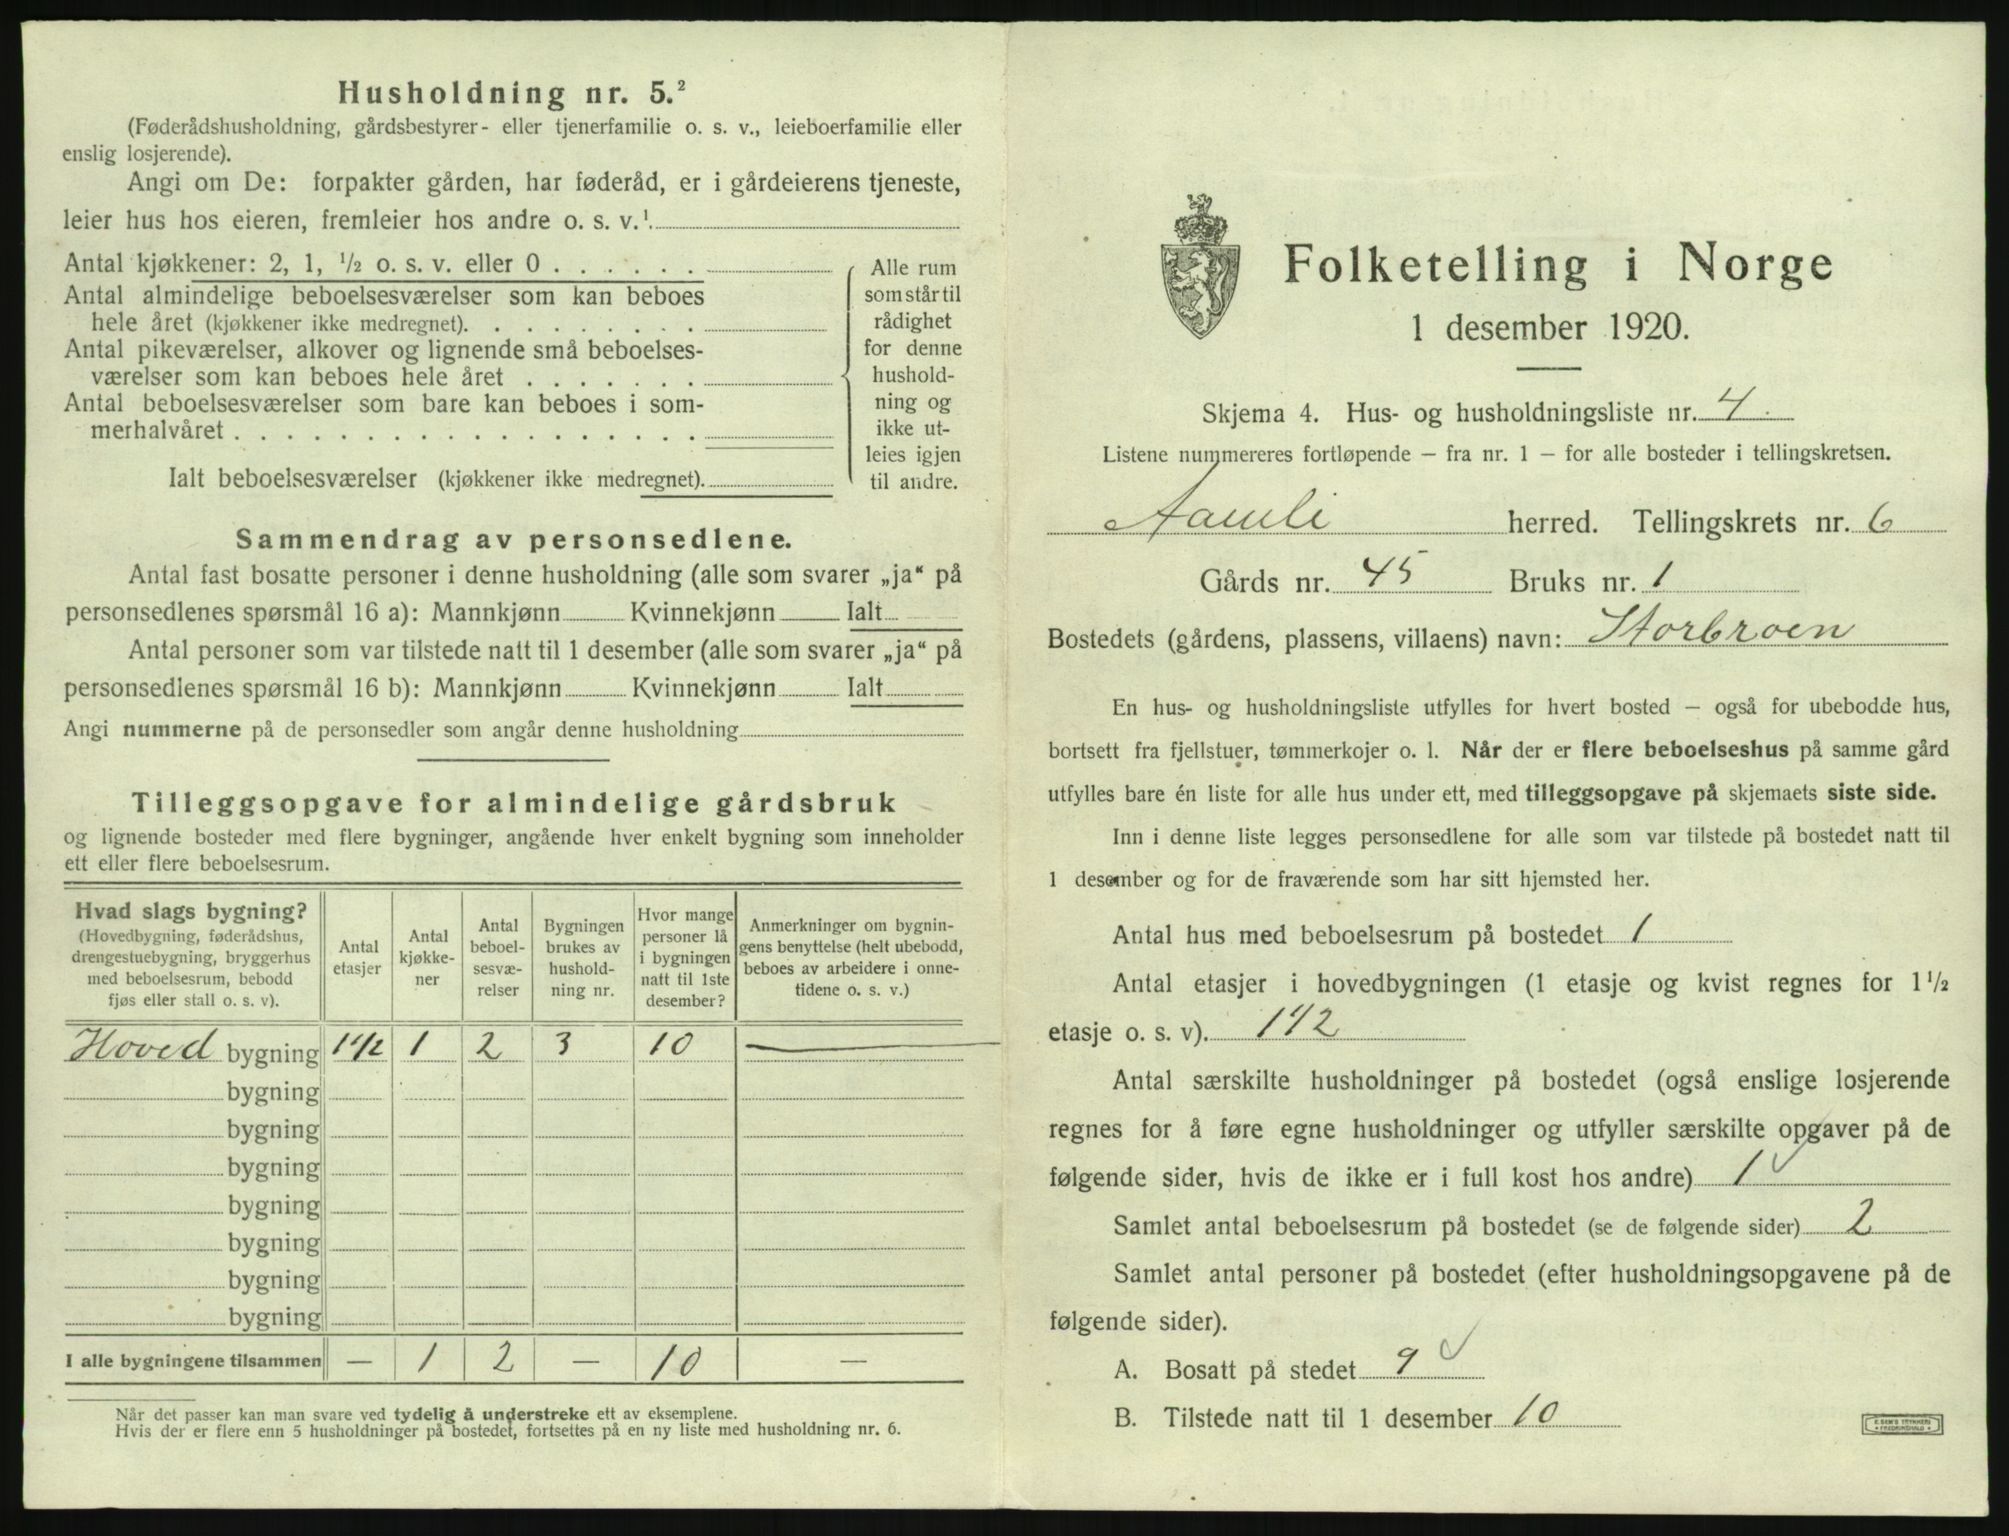 Husholdning nr. 5.²
(Føderådshusholdning, gårdsbestyrer- eller tjenerfamilie o. s. v., leieboerfamilie eller
enslig losjerende).
Angi om De: forpakter gården, har føderåd, er i gårdeierens tjeneste,
leier hus hos eieren, fremleier hos andre o. s. v.¹
Antal kjøkkener: 2, 1, ½ o. s. v. eller 0 . . . . . .
Antal almindelige beboelsesværelser som kan beboes
hele året (kjøkkener ikke medregnet). . . . . . . . .
Antal pikeværelser, alkover og lignende små beboelses-
værelser som kan beboes hele året . . . . . . .
Antal beboelsesværelser som bare kan beboes i som-
merhalvåret . . . . . . . . . . . . . . . . . .
Ialt beboelsesværelser (kjøkkener ikke medregnet).
Alle rum
som står til
rådighet
for denne
hushold-
ning og
ikke ut-
leies igjen
til andre.
Sammendrag av personsedlene.
Antal fast bosatte personer i denne husholdning (alle som svarer „ja“ på
personsedlenes spørsmål 16 a): Mannkjønn Kvinnekjønn Ialt
Antal personer som var tilstede natt til 1 desember (alle som svarer „ja“ på
personsedlenes spørsmål 16 b): Mannkjønn Kvinnekjønn Ialt
Angi nummerne på de personsedler som angår denne husholdning
Tilleggsopgave for almindelige gårdsbruk
og lignende bosteder med flere bygninger, angående hver enkelt bygning som inneholder
ett eller flere beboelsesrum.
Hvad slags bygning?
(Hovedbygning, føderådshus,
drengestuebygning, bryggerhus
med beboelsesrum, bebodd
fjøs eller stall o. s. v).
Antal
etasjer
Antal
kjøkke-
ner
Antal
beboel-
sesvæ-
relser
Bygningen
brukes av
hushold-
ning nr.
Hvor mange
personer lå
i bygningen
natt til 1ste
desember?
Anmerkninger om bygnin-
gens benyttelse (helt ubebodd,
beboes av arbeidere i onne-
tidene o. s. v.)
Hoved bygning 1 1/2 1 2 3 10 —
bygning
bygning
bygning
bygning
bygning
bygning
bygning
I alle bygningene tilsammen — 1 2 — 10 —
Når det passer kan man svare ved tydelig å understreke ett av eksemplene.
Hvis der er flere enn 5 husholdninger på bostedet, fortsettes på en ny liste med husholdning nr. 6.
Folketelling i Norge
1 desember 1920.
Skjema 4. Hus- og husholdningsliste nr. 4.
Listene nummereres fortløpende — fra nr. 1 — for alle bosteder i tellingskretsen.
Aamli herred. Tellingskrets nr. 6
Gårds nr. 45 Bruks nr. 1
Bostedets (gårdens, plassens, villaens) navn: Storbroen
En hus- og husholdningsliste utfylles for hvert bosted — også for ubebodde hus,
bortsett fra fjellstuer, tømmerkojer o. l. Når der er flere beboelseshus på samme gård
utfylles bare én liste for alle hus under ett, med tilleggsopgave på skjemaets siste side.
Inn i denne liste legges personsedlene for alle som var tilstede på bostedet natt til
1 desember og for de fraværende som har sitt hjemsted her.
Antal hus med beboelsesrum på bostedet 1
Antal etasjer i hovedbygningen (1 etasje og kvist regnes for 1½
etasje o. s. v). 1 1/2
Antal særskilte husholdninger på bostedet (også enslige losjerende
regnes for å føre egne husholdninger og utfyller særskilte opgaver på de
følgende sider, hvis de ikke er i full kost hos andre) 1 ✓
Samlet antal beboelsesrum på bostedet (se de følgende sider) 2
Samlet antal personer på bostedet (efter husholdningsopgavene på de
følgende sider).
A. Bosatt på stedet 9 ✓
B. Tilstede natt til 1 desember 10